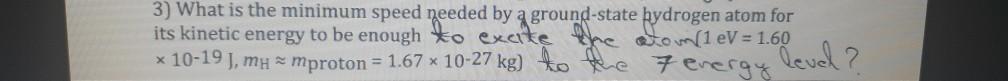 3) What is the minimum speed needed by a ground-state hydrogen atom for
its kinetic energy to be enough to excite the atom (1 eV = 1.60
× 10-19 J, mH ≈ mproton = 1.67 × 10-27 kg) to the 7 energy level?